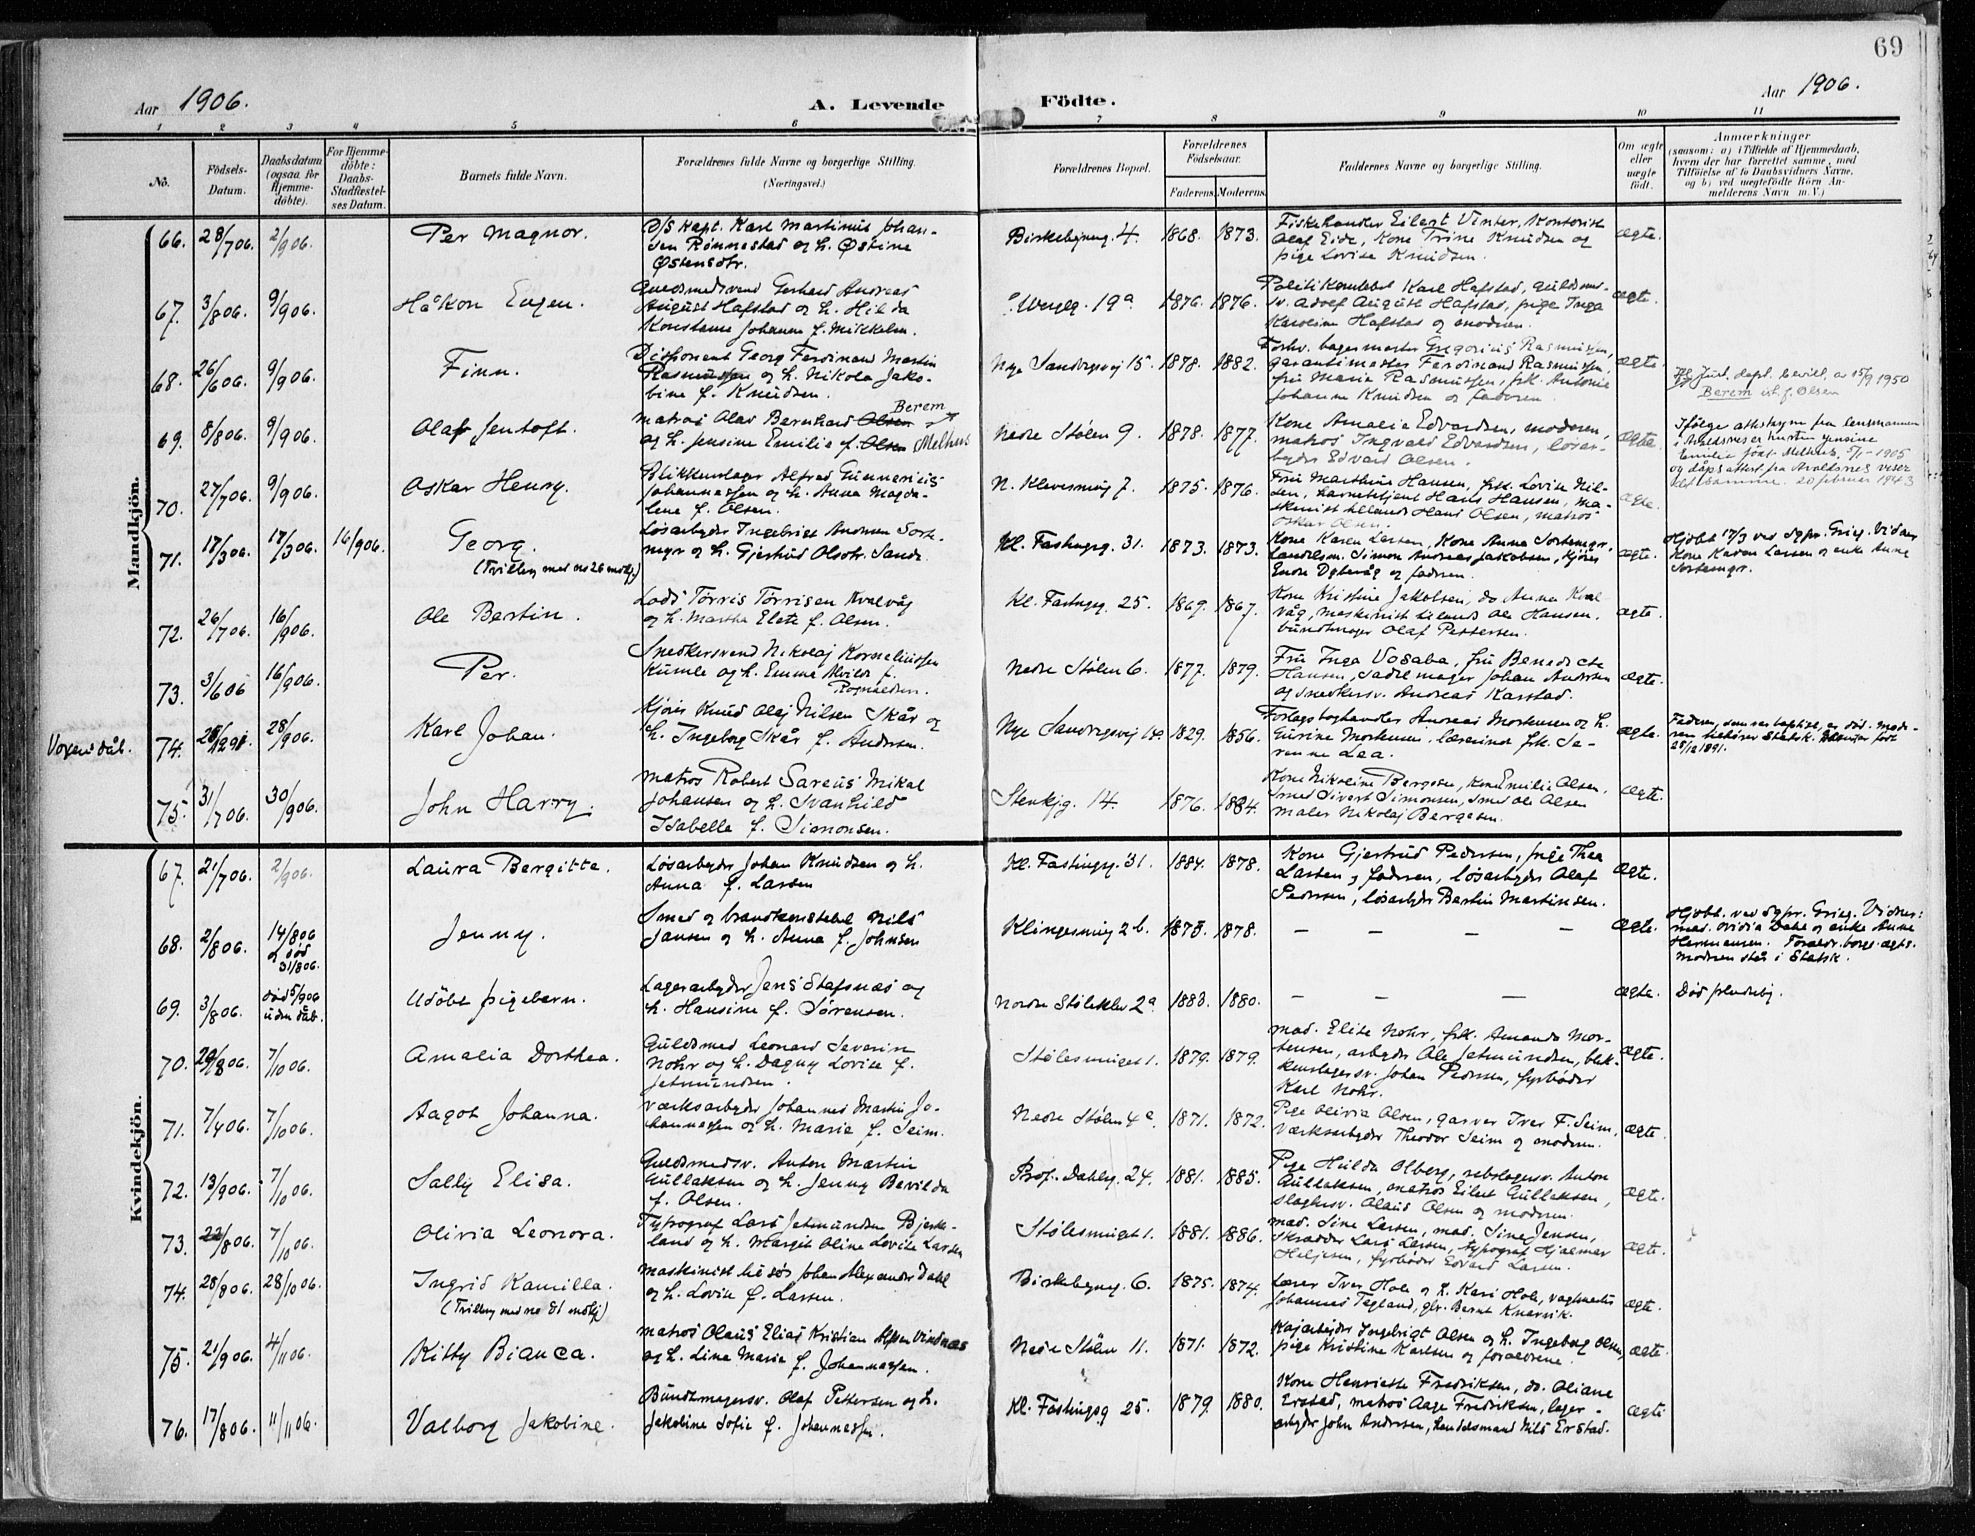 69
Aar 1906.
A. Levende
Födte.
Aar 1906.
1 2 3 4 5 6 7 8 9 10 11
No.
Födsels-
Datum.
Daabsdatum
(ogsaa for
Hjemme-
döbte).
For Hjemme-
döbte:
Daabs-
Stadfæstel-
ses Datum.
Barnets fulde Navn.
Forældrenes fulde Navne og borgerlige Stilling.
(Næringsvei.)
Forældrenes Bopæl.
Forældrenes
Födselsaar.
Faderens. Moderens.
Faddernes Navne og borgerlige Stilling.
Om ægte
eller
uægte
födt.
Anmærkninger
(saasom: a) i Tilfælde af Hjemmedaab,
hvem der har forrettet samme, med
Tilföielse af to Daabsvidners Navne,
og b) ved uægtefödte Börn An-
melderens Navn m. V.)
Mandkjön.
66. 28/7 06. 2/9 06. Per Magnor.
D/S Kapt. Karl Martinius Johan-
sen Rønnestad og h. Østine
Østensdtr.
Birkebgneg. 4. 1868. 1873.
Fiskehandler Eilert Vinter, Kontorist
Olaf Eide, Kone Trine Knudsen og
pige Lovise Knudsen.
ægte.
67. 3/8 06. 9/9 06. Håkon Eugen.
Guldsmedsvend Gerhard Andreas
August Hafstad og h. Hilda
Konstanse Johanna f. Mikkelsen.
19a 1876. 1876.
Politikonstabel Karl Hafstad, guldsmed-
sv. Adolf August Hafstad, pige Inga
Karoline Hafstad og moderen.
ægte.
68. 26/6 06. 9/9 06. Finn.
Disponent Georg Ferdinand Martin
Rasmussen og h. Nikola Jako-
bine f. Knudsen.
Nye Sandvigsvej 15. 1878. 1882.
Forhv. bagermester Gregorius Rasmussen,
garantimester Ferdinand Rasmussen,
fru Marie Rasmussen, frk. Antonie
Johanne Knudsen og faderen.
ægte.
69. 8/8 06. 9/9 06. Olaf Jentoft.
Berem
Matros Olav Bernhard Olsen
og h. Jensine Emilie f. Olsen Melhus
Nedre Stølen 9. 1878. 1877.
Kone Amalie Edvardsen, moderen,
matros Ingvald Edvardsen, løsar-
beyder Edvard Olsen.
ægte.
Jflg. Just. dept. bevill. av 15/9 1950
Berem ist. f. Olsen
Ifølge attest fra lensmannen
i Avaldsnes er hustru Jensine
Emilie født Melhus, 5/1-1905
og dåpsattest fra Avaldsnes viser
det samme. 20 februar 1943
70. 27/7 06. 9/9 06. Oskar Henry.
Blikkenslager Alfred
Johannessen og h. Anna Magda-
lene f. Olsen.
N. Kleversmug 7. 1875. 1876.
Fru Marthine Hansen, frk. Lovise Nil-
sen, Hans Hansen, ma-
skinist tillands Hans Olsen, matros
Oskar Olsen.
ægte.
71. 17/3 06. 17/3 06. 16/9 06. Georg.
(Tvilling med no 26 )
Løsarbeyder Ingebrigt Andersen Sorte-
myr og h. Gjertrud Olsdtr. Sande.
Kl. Fastingsg. 31. 1873. 1873.
Kone Karen Larsen, Kone Anna Sortemyr,
Simon Andreas Jakobsen, Kjører
Endre og faderen.
ægte.
Hjdbt 17/3 ved Sgpr. Grieg. Vidner
Kone Karen Larsen og enke Anne
Sortemyr.
72. 26/7 06. 16/9 06. Ole Bertin.
Lods Tørris Tørrisen Kvalvåg
og h. Martha Elete f. Olsen.
Kl. Fastingsg. 25. 1869. 1867.
Kone Kristine Jakobsen, do Anna Kval
våg, maskinist tillands Ole Hansen,
bundtmager Olaf Pettersen.
ægte.
73. 3/6 06 16/9 06. Per.
Snedkersvend Nikolaj Korneliussen
Kumle og h. Emma Alvilde f.
Rognaldsen.
Nedre Stølen 6. 1877. 1879.
Fru Inga Vosaba, fru Benedicte
Hansen, Sadelmager Johan Andersen
og snedkersv. Andreas Karstad.
ægte.
Voxendåb.
74. 28/9 06. Karl Johan.
Kjører Knud Olaj Nilsen Skår og
h. Ingeborg Skår f. Andersen.
Nye Sandvigsvej 1829. 1856.
Forlagsboghandler Andreas Mortensen og h.
Gurine Mortensen, lærerinde frk. Se-
verine Lea.
ægte.
Faderen, som var baptist, er død. Mode-
ren tilhører Statsk. født
25/12 1891.
75. 31/7 06. 30/9 06. John Harry.
Matros Robert Sareus Mikal
Johansen og h. Svanhild
Isabelle f. Simonsen.
Stenkjg. 14. 1876. 1884.
Kone Nikoline Bergesen, Kone Emilie Olsen,
Smed Sivert Simonsen, Smed Ole Olsen
maler Nikolaj Bergesen.
ægte.
Kvindekjön.
67. 21/7 06. 2/9 06. Laura Bergitte.
Løsarbeyder Johan Knudsen og h.
Anna f. Larsen
Kl. Fastingsg. 31. 1884. 1878.
Kone Gjertrud Pedersen, pige Thea
Larsen og faderen, løsarbeyder Olaf
Pedersen, løsarbyder Bertin Martinsen.
ægte.
68. 2/8 06. 14/8 06
død
31/8 06.
Jenny.
Smed og brandkonstabel Nils
Jansen og h. Anna f. Johnsen
Klingesmug 2b. 1878. 1878.
— — — —
ægte.
Hjdbt. ved Sgpr. Grieg. Vidner:
mad. Ovidia Dahl og enke Anne
Hermansen. Forældr. borg. ægts.
Moderen står i Statsk.
69. 3/8 06. død 5/9 06
uden dåb.
Udøbt pigebarn.
Lagerarbeyder Jens Stafsnæs og
h. Hansine f. Sørensen.
Nordre Stølekler 2a 1883. 1880.
— — —
ægte.
Død
70. 29/8 06. 7/10 06. Amalia Dorthea.
Guldsmed Leonard Severin
Nohr og h. Dagny Lovise f.
Jetmundsen.
Stølesmuget 1. 1879. 1879.
Mad. Elise Nohr, frk. Amanda Mor-
tensen, arbeyder Ole Jetmundsen, blik-
kenslagersv. Johan Pedersen, fyrbøder
Karl Nohr.
ægte.
71. 7/4 06. 7/10 06. Aagot Johanna.
Værksarbeyder Johannes Martin Jo-
hannessen og h. Marie f. Seim.
Nedre Stølen 4a. 1871. 1872.
Pige Olivia Olsen, garver Iver F. Seim,
Værksarbeyder Theodor Seim og moderen.
ægte.
72. 13/9 06. 7/10 06. Sally Elisa.
Guldsmedsv. Anton Martin
Gullaksen og h. Jenny Bevilda
f. Olsen.
Prof. Dahlsg. 24. 1881. 1885.
Pige Hulda Olberg, rebslagersv. Anton
Gullaksen, matros Eilert Gullaksen,
slagtersv. Olaus Olsen og moderen.
ægte.
73. 22/8 06. 7/10 06. Olivia Leonora.
Typograf Lars Jetmundsen Bjerke-
land og h. Margit Oline Lovise Larsen
Stølesmuget 1. 1881. 1886.
Mad. Sine Larsen, mad. Sine Jensen,
Skrædder Lars Larsen, typograf Hjalmar
Heljesen, fyrbøder Edvard Larsen.
ægte.
74. 28/8 06. 28/10 06. Ingrid Kamilla.
(Tvilling med no 81 )
Maskinist tilsøs Johan Alexander Dahl
og h. Lovise f. Larsen.
Birkebgneg. 6. 1875. 1874.
Lærer Iver Hole og h. Kari Hole, vagtmester
Johannes Tegland, Bernt Knarvik.
ægte.
75. 21/9 06. 4/11 06. Kitty Bianca.
Matros Olaus Elias Kristian Vindnæs
og h. Line Marie f. Johannessen.
Nedre Stølen 11. 1871. 1872.
Kajarbejder Ingebrigt Olsen og h. Ingeborg Olsen,
pige Kristine Karlsen og forældrene.
ægte.
76. 17/8 06. 11/11 06. Valborg Jakobine.
Bundtmagersv. Olaf Pettersen og h.
Jakobine Sofie f. Johannessen.
Kl. Fastingsg 25. 1879. 1880.
Kone Henriette Fredriksen, do. Oliane
Erstad, matros Aage Fredriksen, lager-
arbyder John Andersen, handelsmand Nils Erstad.
ægte